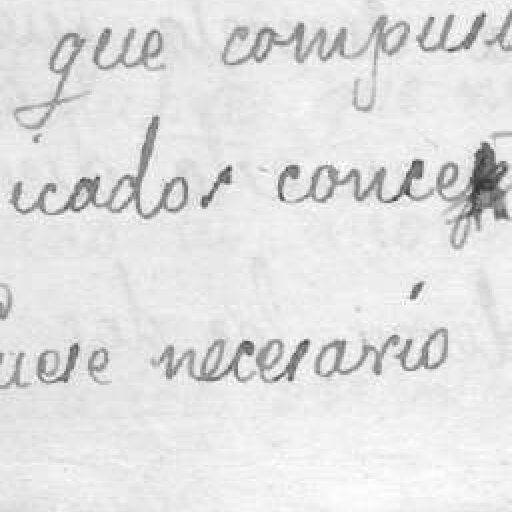 que compus
icados conce
uese necesario